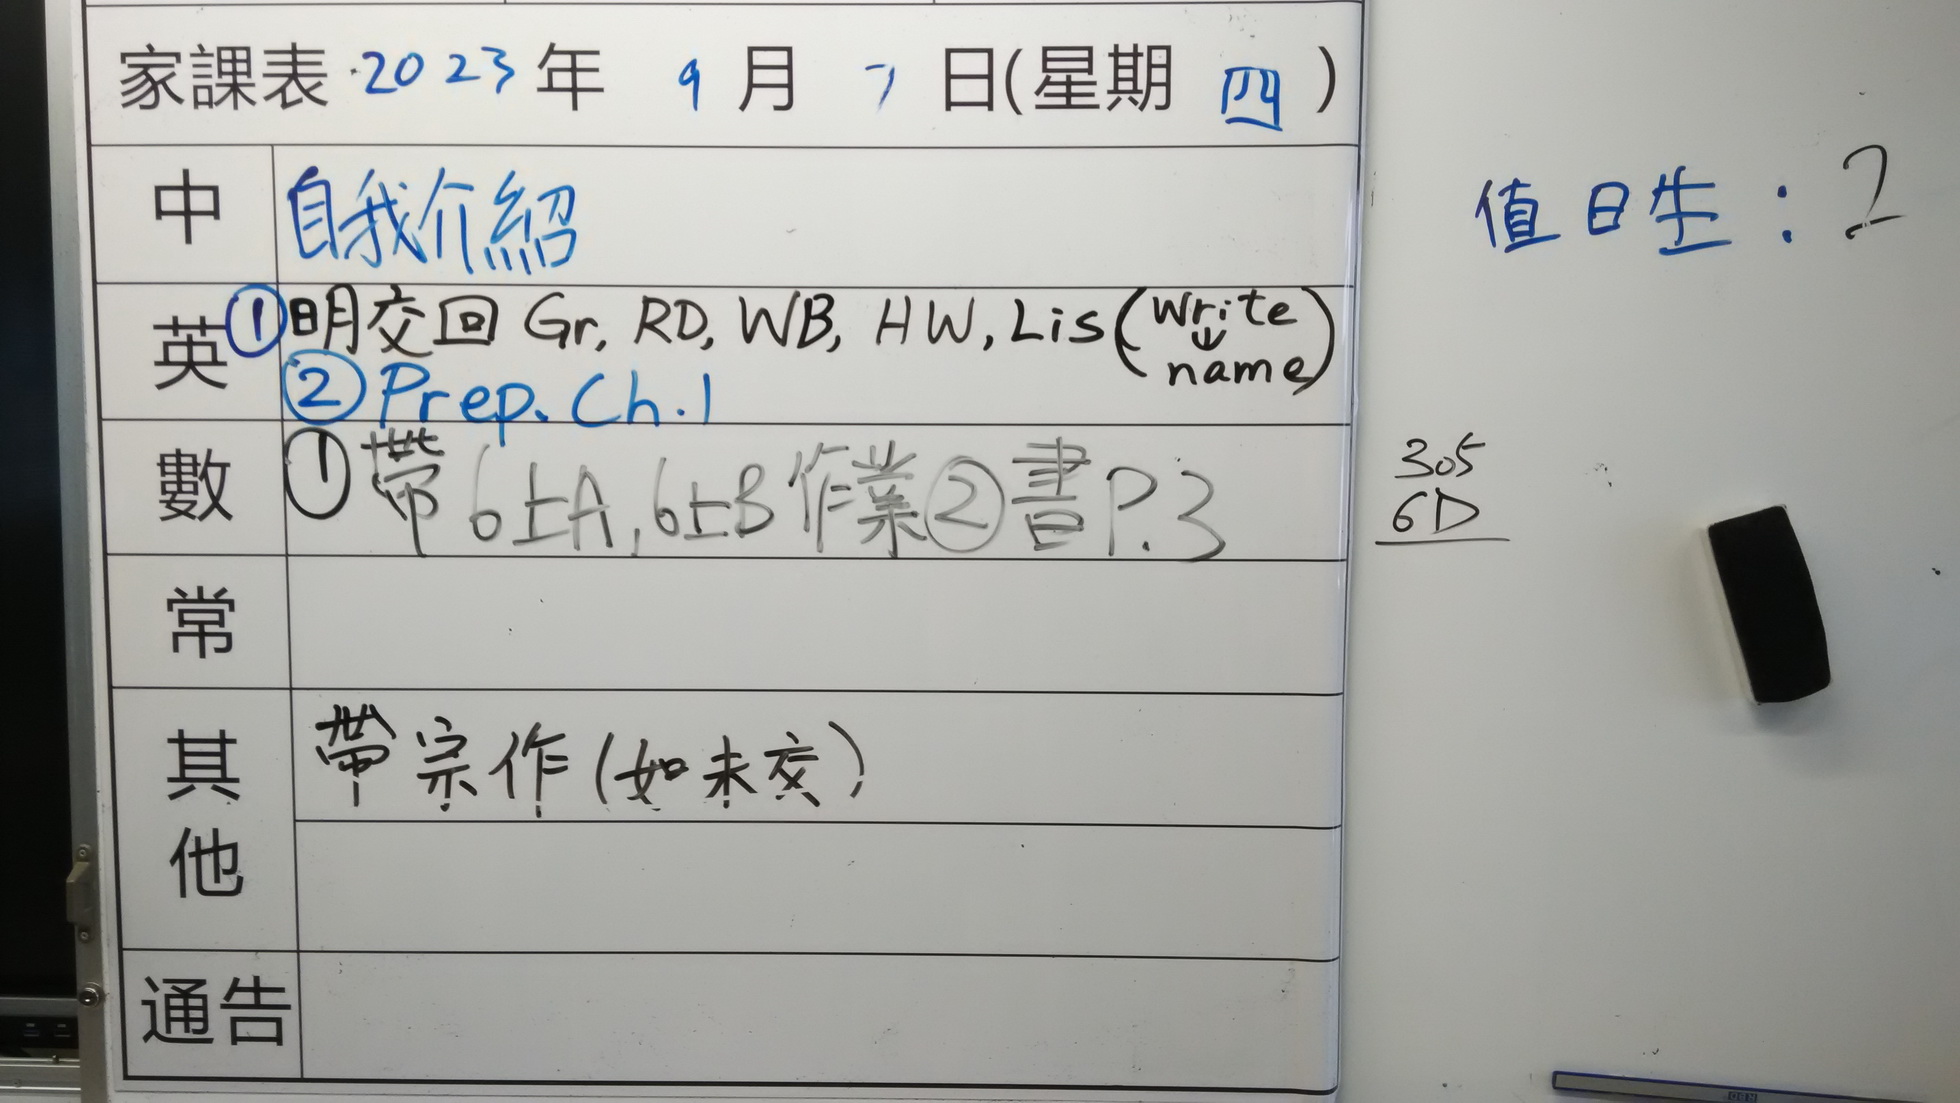 家課表 2023 年 9 月 7 日(星期 四 )
中 自我介紹
英 ①明交回 Gr, RD, WB, HW, Lis (write
name)
②Prep. Ch.1
數 ①帶6上A,6上B作業②書P.3
常
其他 帶宗作(如未交)
通告
值日生:2
305
6D